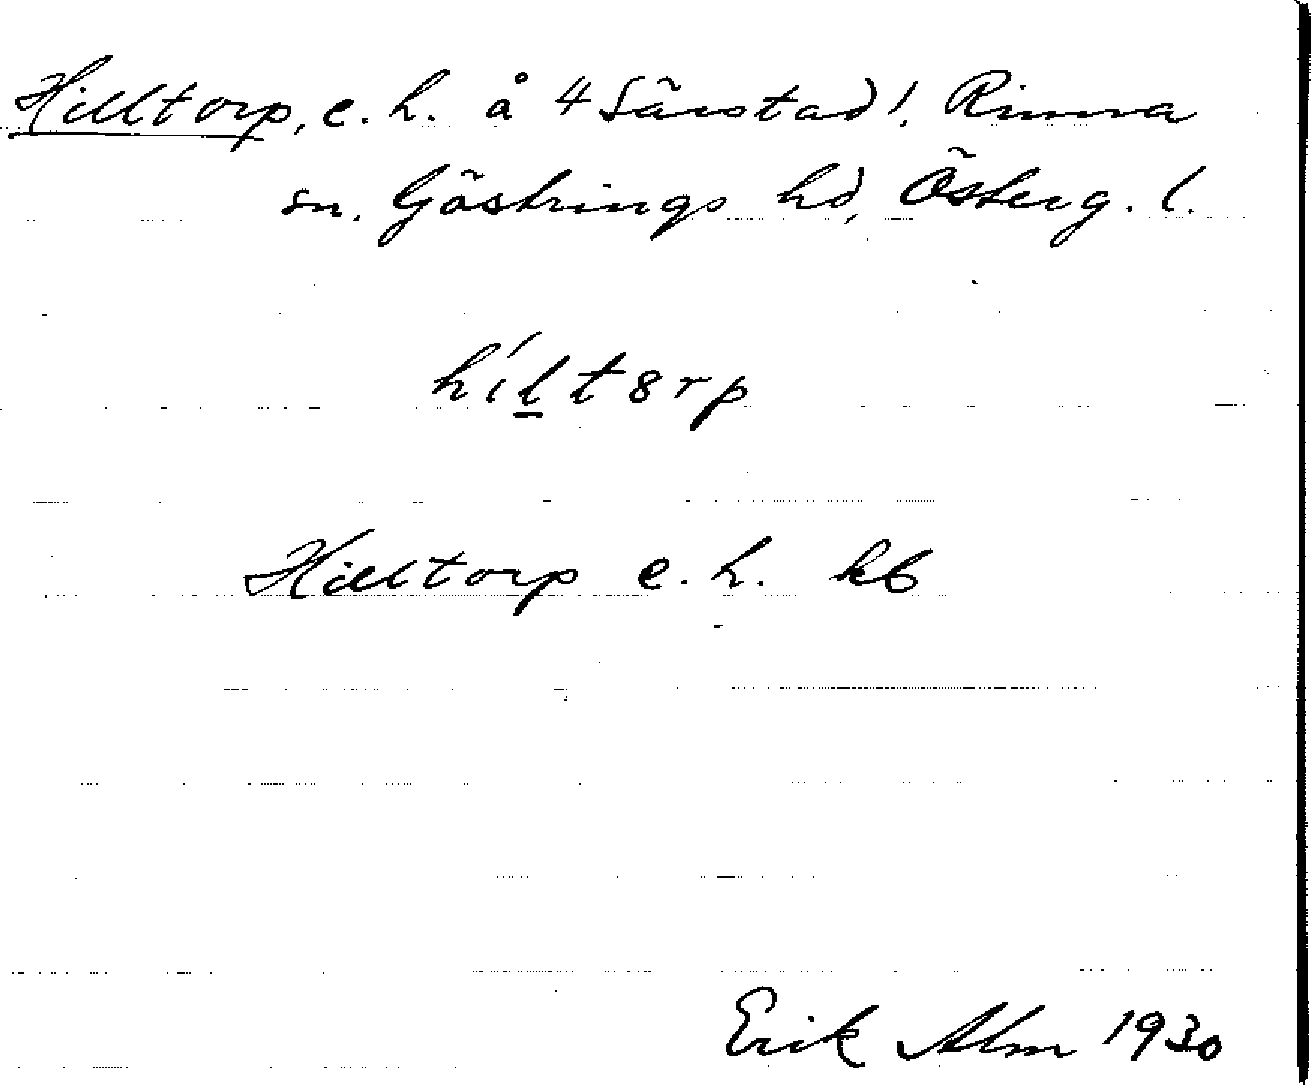 Hilltorp, e. h. å 4 Särstad!, Rinna
sn. Göstrings hd, Österg. l.
híltorp
Hilltorp e. h. kb
Erik Alm 1930